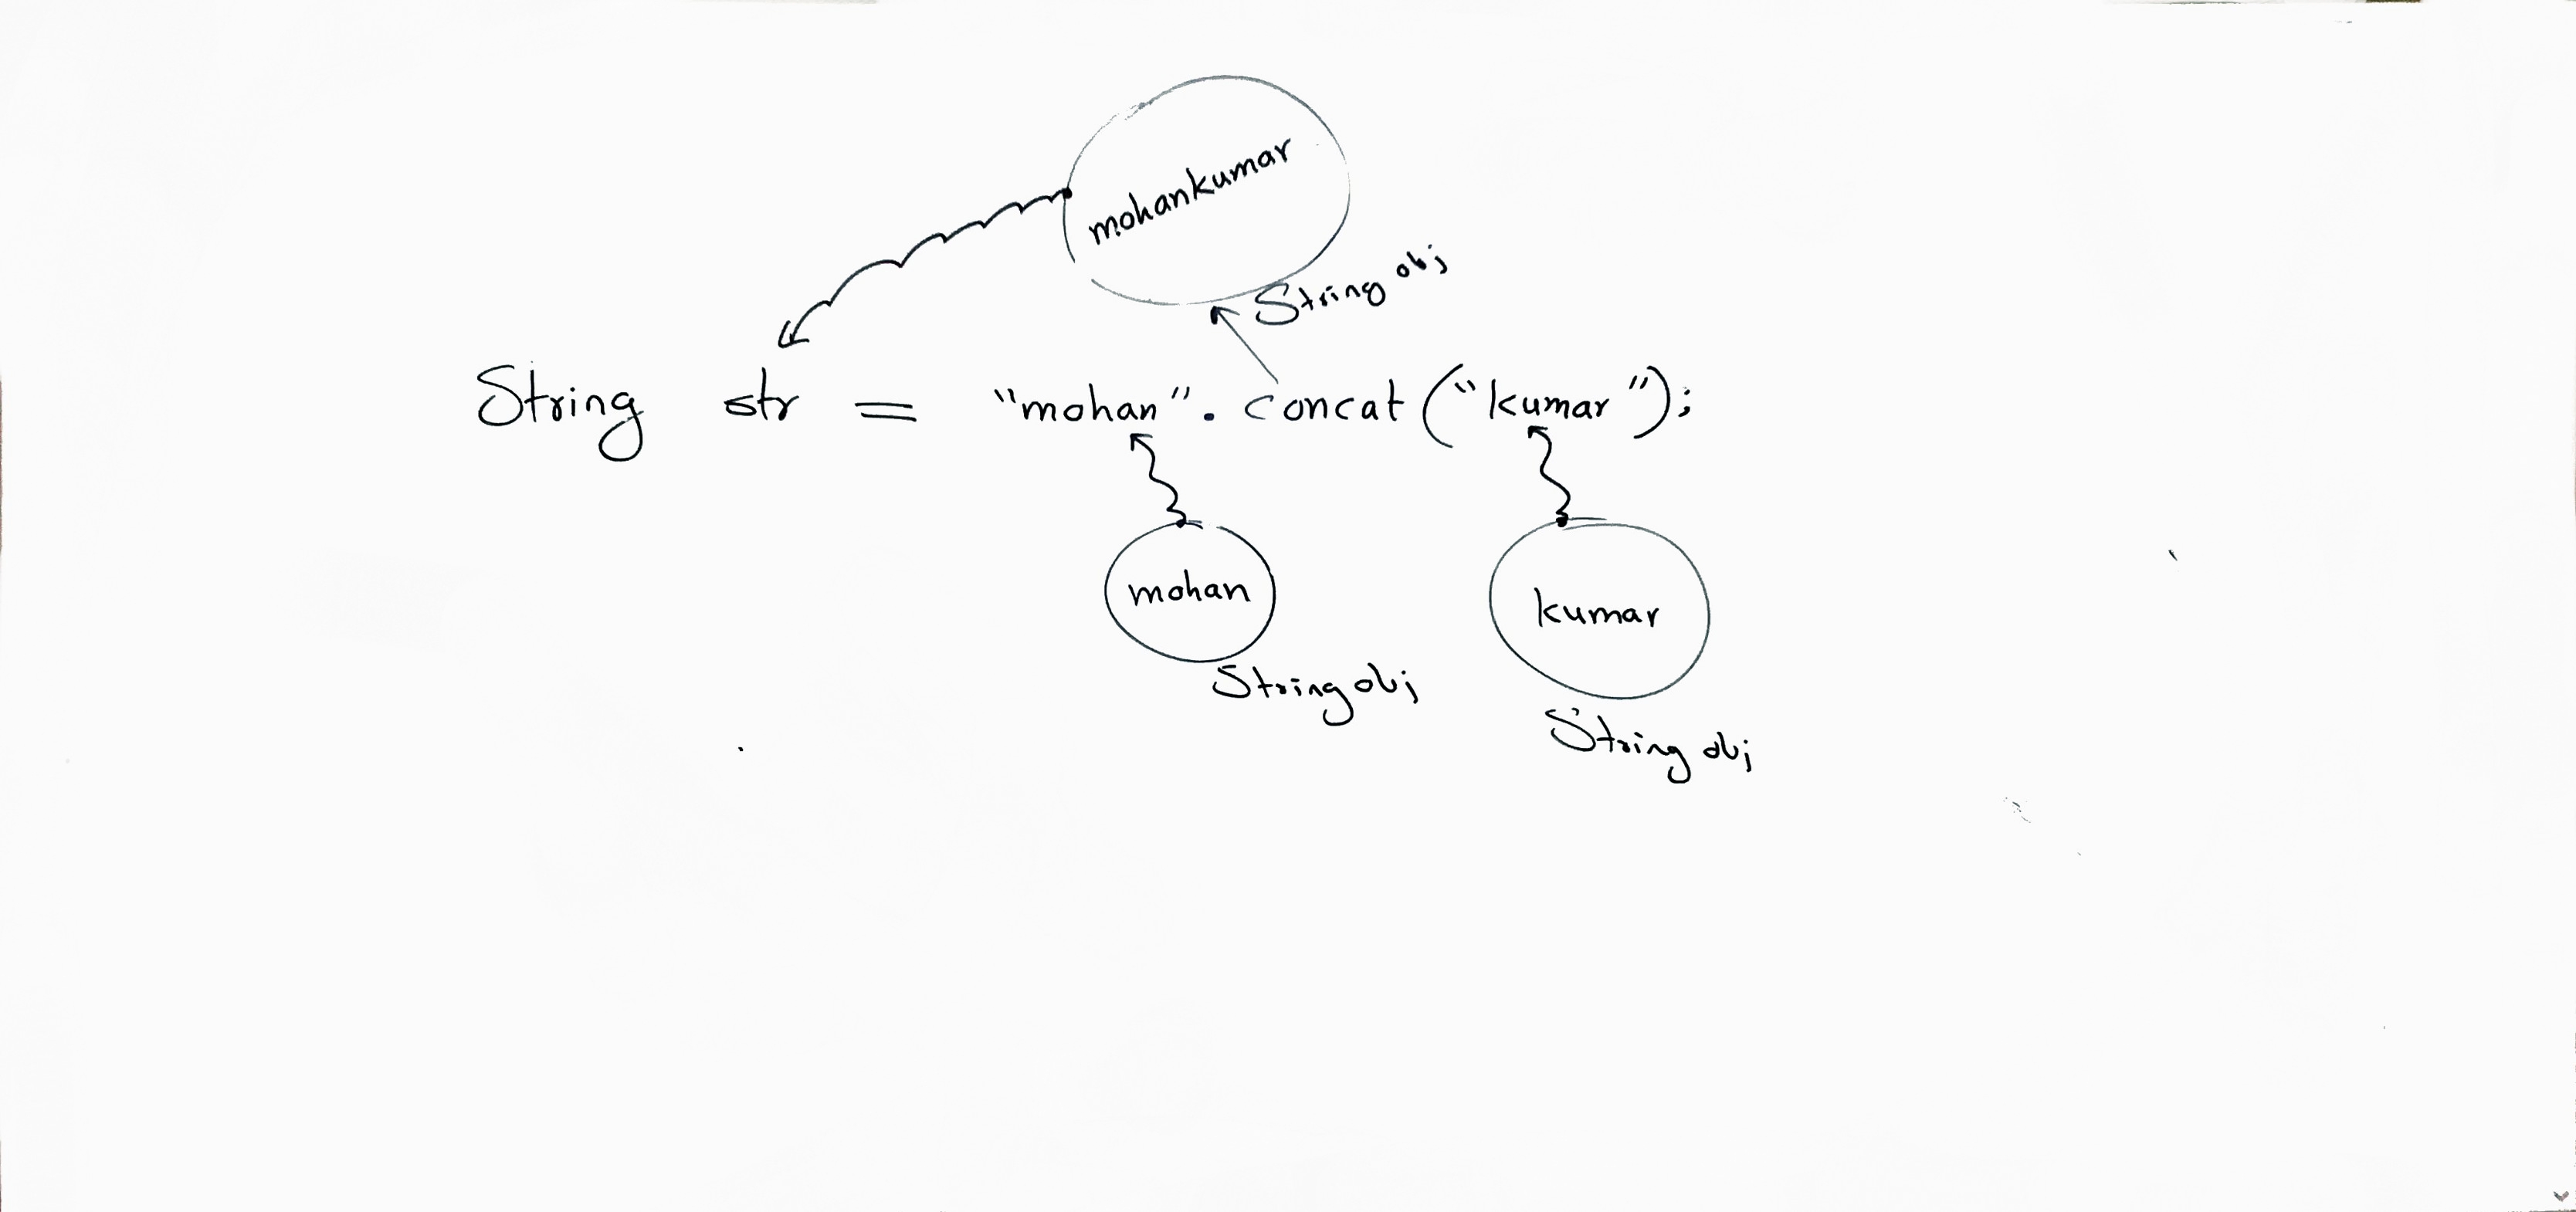 mohankumar
String obj
String str = "mohan". concat ("kumar");
mohan
kumar
String obj
String obj